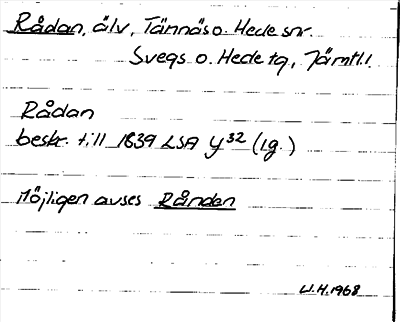 Rådan, älv, Tännäs o. Hede snr.
Svegs o. Hede tg, Jämtl.l.
Rådan
beskr. till 1839 LSA Y32 (lg.)
Möjligen avses Rånden
U.H. 1968